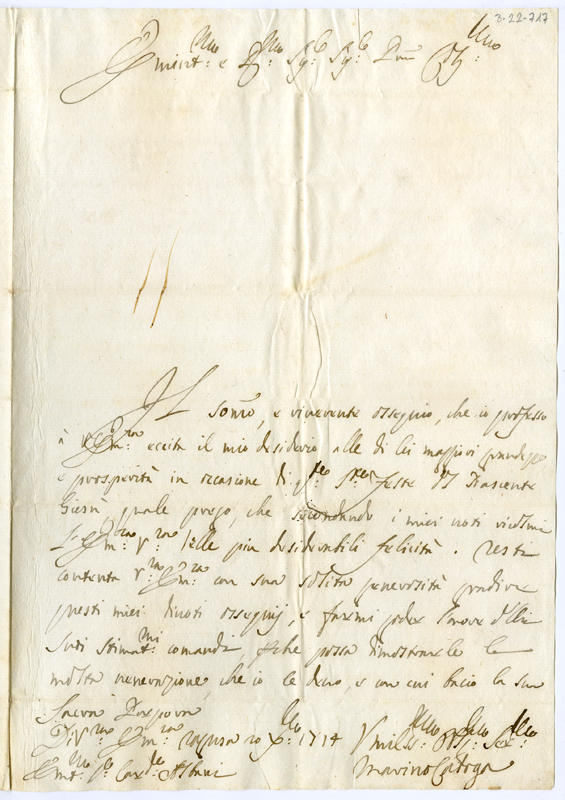 3-22-717
Emint.mo e R.mo Sig.r Sig.r Pron Col.mo
Il sommo, e riverente ossequio, che io professo
à V. Em.za eccita il mio desiderio alle di lei maggiori grandezze
e prosperità in occasione di q.te S.te Feste del Nascente
Giesù, quale prego, che secondando i miei voti ricolmi
l'Em.za V.ra delle più desiderabili felicità. Resti
contenta V.ra Em.za con sua solita generosità gradire
questi miei divoti ossequij, e farmi goder l'onore delli
suoi stimat.mi comandi, che possa dimostrarle la
molta venerazione, che io le devo, e con cui bacio la sua
Sacra Porpora
Di V.ra Em.za Ragusa 20 X.bre 1714 Umiliss.o Ser.re
Em.mo S.r Card.le Albani Marino Caboga